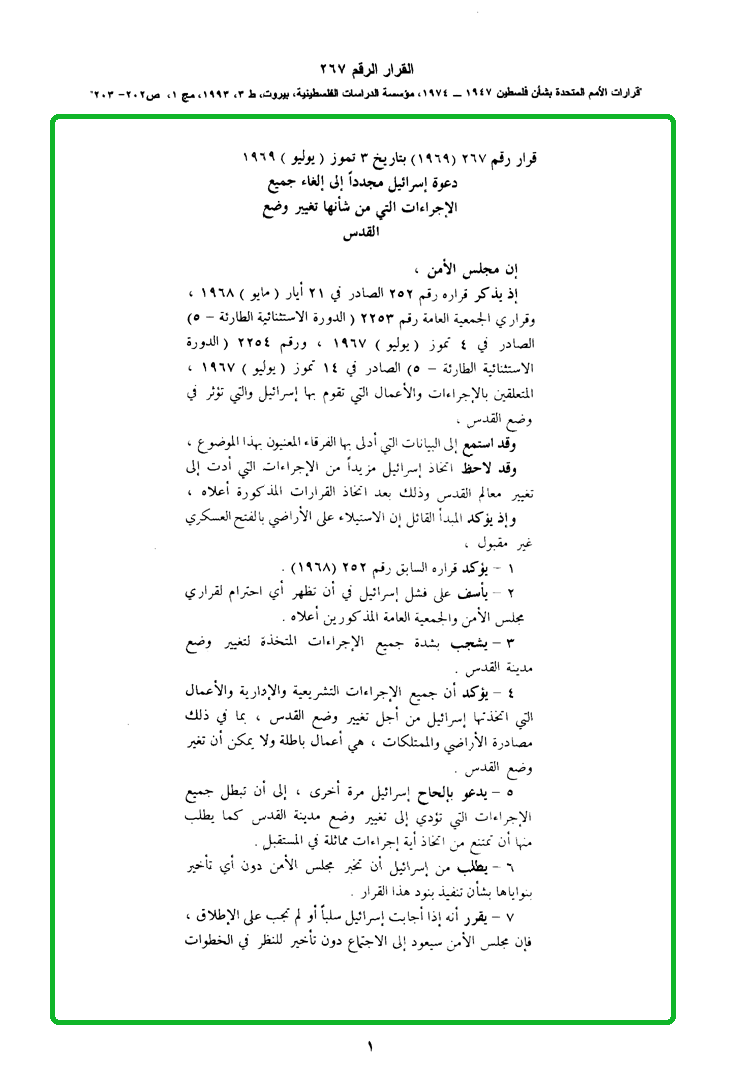 القرار الرقم ٢٦٧
"قرارات الأمم المتحدة بشأن فلسطين ١٩٤٧ ــ ١٩٧٤، مؤسسة الدراسات الفلسطينية، بيروت، ط ٣، ١٩٩٣، مج ١، ص٢٠٢- ٢٠٣"
قرار رقم ٢٦٧ (١٩٦٩) بتاريخ ٣ تموز ( يوليو ) ١٩٦٩
دعوة إسرائيل مجدداً إلى إلغاء جميع
الإجراءات التي من شأنها تغيير وضع
القدس
إن مجلس الأمن ،
إذ يذكر قراره رقم ٢٥٢ الصادر في ٢١ أيار ( مايو ) ١٩٦٨ ،
وقراري الجمعية العامة رقم ٢٢٥٣ ( الدورة الاستثنائية الطارئة – ٥)
الصادر في ٤ تموز ( يوليو ) ١٩٦٧ ، ورقم ٢٢٥٤ ( الدورة
الاستثنائية الطارئة – ٥) الصادر في ١٤ تموز ( يوليو ) ١٩٦٧ ،
المتعلقين بالإجراءات والأعمال التي تقوم بها إسرائيل والتي تؤثر في
وضع القدس ،
وقد استمع إلى البيانات التي أدلى بها الفرقاء المعنيون بهذا الموضوع ،
وقد لاحظ اتخاذ إسرائيل مزيداً من الإجراءات التي أدت إلى
تغيير معالم القدس وذلك بعد اتخاذ القرارات المذكورة أعلاه ،
وإذ يؤكد المبدأ القائل إن الاستيلاء على الأراضي بالفتح العسكري
غير مقبول ،
١ – يؤكد قراره السابق رقم ٢٥٢ (١٩٦٨) .
٢ – يأسف على فشل إسرائيل في أن تظهر أي احترام لقراري
مجلس الأمن والجمعية العامة المذكورين أعلاه .
٣ – يشجب بشدة جميع الإجراءات المتخذة لتغيير وضع
مدينة القدس .
٤ – يؤكد أن جميع الإجراءات التشريعية والإدارية والأعمال
التي اتخذتها إسرائيل من أجل تغيير وضع القدس ، بما في ذلك
مصادرة الأراضي والممتلكات ، هي أعمال باطلة ولا يمكن أن تغير
وضع القدس .
٥ – يدعو بإلحاح إسرائيل مرة أخرى ، إلى أن تبطل جميع
الإجراءات التي تؤدي إلى تغيير وضع مدينة القدس كما يطلب
منها أن تمتنع من اتخاذ أية إجراءات مماثلة في المستقبل .
٦ – يطلب من إسرائيل أن تخبر مجلس الأمن دون أي تأخير
بنواياها بشأن تنفيذ بنود هذا القرار .
٧ – يقرر أنه إذا أجابت إسرائيل سلباً أو لم تجب على الإطلاق ،
فإن مجلس الأمن سيعود إلى الاجتماع دون تأخير للنظر في الخطوات
١